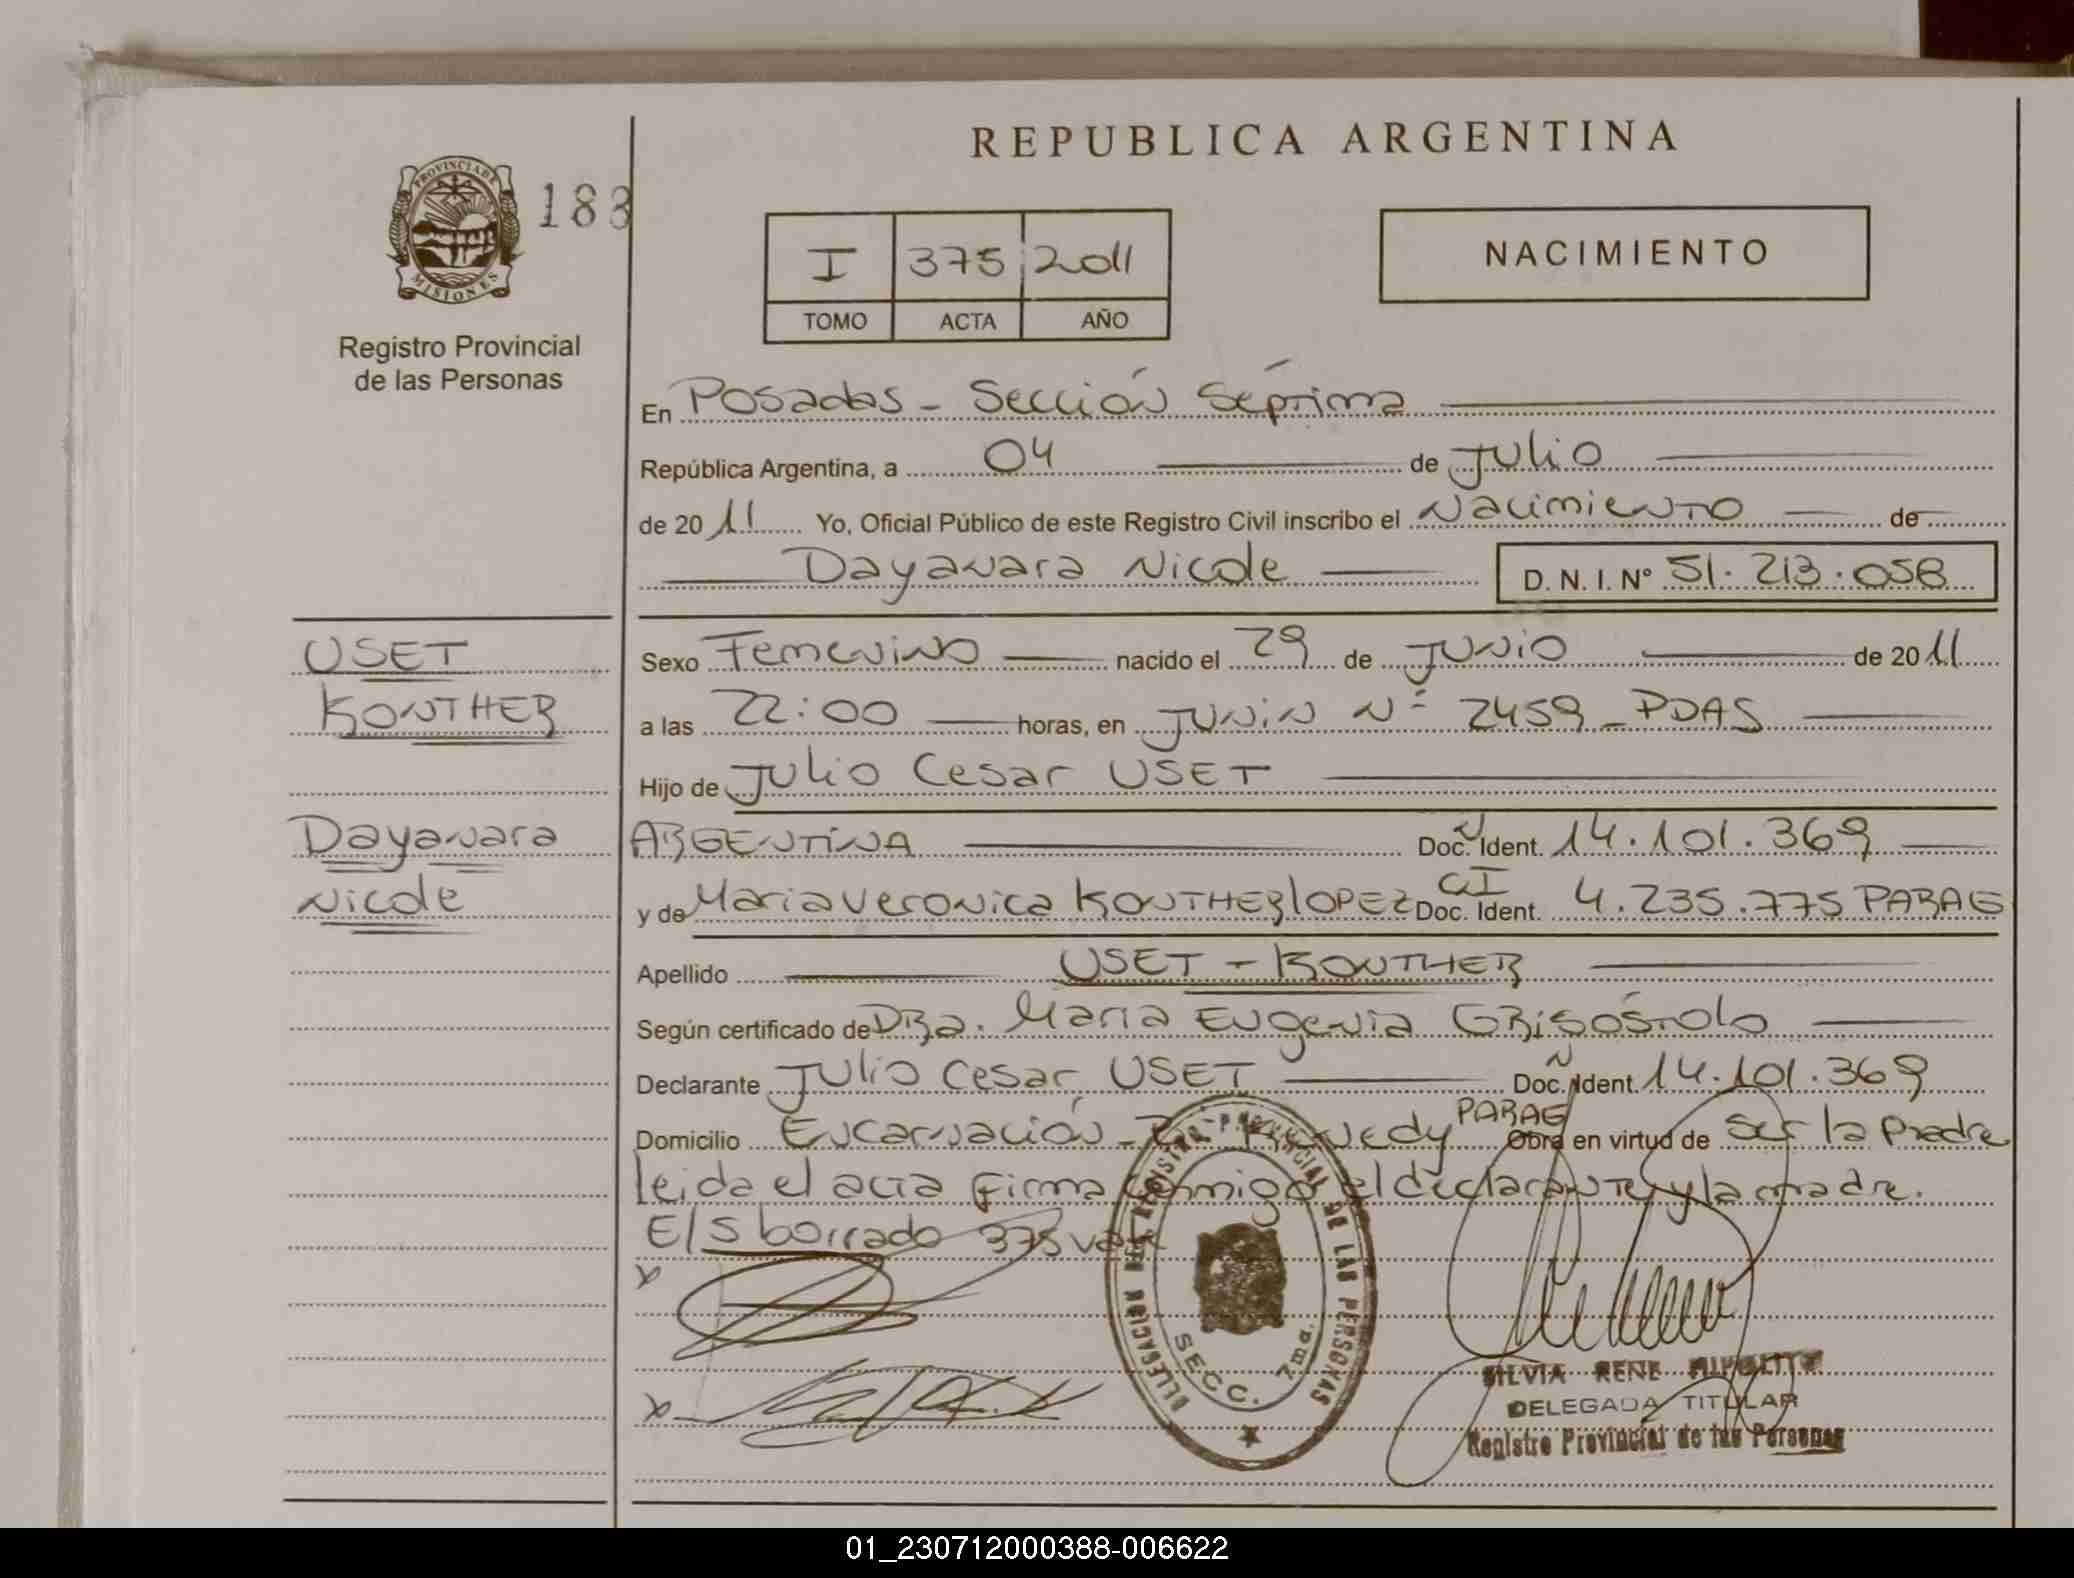 REPUBLICA ARGENTINA
PROVINCIA DE
MISIONES
183
Registro Provincial
de las Personas
I 375 2011
TOMO ACTA AÑO
NACIMIENTO
En Posadas - Sección Séptima
República Argentina, a 04 de Julio
de 2011 Yo, Oficial Público de este Registro Civil inscribo el Nacimiento de
Dayanara Nicole D. N. I. Nº 51.213.058
USET
KONTHER
Dayanara
Nicole
Sexo Femenino nacido el 29 de Junio de 2011
a las 22:00 horas, en Junín Nº 2459 - PDAS
Hijo de Julio Cesar USET
ARGENTINA Doc. Ident. 14.101.369
y de Maria Veronica KONTHER LOPEZ Doc. Ident. CI 4.235.775 PARAG
Apellido USET - KONTHER
Según certificado de DRA. Maria Eugenia GRISÓSTOLO
Declarante Julio Cesar USET Doc. Ident. 14.101.369
Domicilio Encarnación - Kenedy PARAG Obra en virtud de ser la Padre
leida el acta firma conmigo el declarante y la madre.
E/S borrado 375 vale
x
x
DELEGACION DEL REGISTRO PROVINCIAL DE LAS PERSONAS
SECC. 7ma.
SILVIA RENE HIPOLITO
DELEGADA TITULAR
Registro Provincial de las Personas
01_230712000388-006622